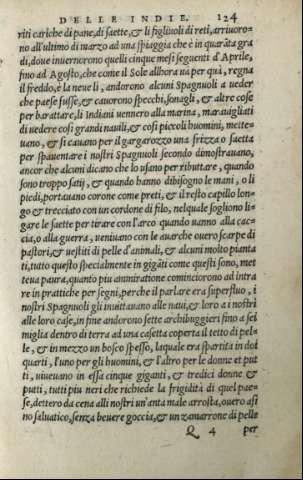 DELLE INDIE. 124
riti cariche di pane, di saette, & li figliuoli di reti, arriuoro-
no all'ultimo di marzo ad una spiaggia che è in quarāta gra
di, doue inuernorono quelli cinque mesi seguenti d'Aprile,
fino ad Agosto, che come il Sole allhora ua per qui, regna
il freddo, è la neue li, andorono alcuni Spagnuoli a ueder
che paese fusse, & cauorono specchi, sonagli, & altre cose
per barattare, li Indiani uennero alla marina, marauigliati
di uedere cosi grandi nauili, & cosi piccoli huomini, mette-
uano, & si cauano per il gargarozzo una frizza o saetta
per spauentare i nostri Spagnuoli secondo dimostrauano,
ancor che alcuni dicano che lo usano per ributtare, quando
sono troppo satij, & quando hanno dibisogno le mani, o li
piedi, portauano corone come preti, & il resto capillo lon-
go & trecciato con un cordone di filo, nelquale sogliono li-
gare le saette per tirare con l'arco quando uanno alla cac-
cia, o alla guerra, ueniuano con le auarche ouero scarpe di
pastori, & uestiti di pelle d'animali, & alcuni molto pianta
ti, tutto questo specialmente in gigāti come questi sono, met
teua paura, quanto piu ammiratione cominciorono ad intra
re in prattiche per segni, perche il parlare era superfluo, i
nostri Spagnuoli gli inuittauano alle naui, & loro a i nostri
alle loro case, in fine andorono sette archibuggieri fino a sei
miglia dentro di terra ad una casetta coperta il tetto di pel-
le, & in mezzo un bosco spesso, laquale era spartita in dot
quarti, l'uno per gli huomini, & l'altro per le donne et put
ti, uiueuano in essa cinque giganti, & tredici donne &
putti, tutti piu neri che richiede la frigidità di quel pae-
se, dettero da cena alli nostri un'anta male arrosta, ouero asi
no saluatico, senza beuere goccia, & un zamarrone di pelle
Q 4 per